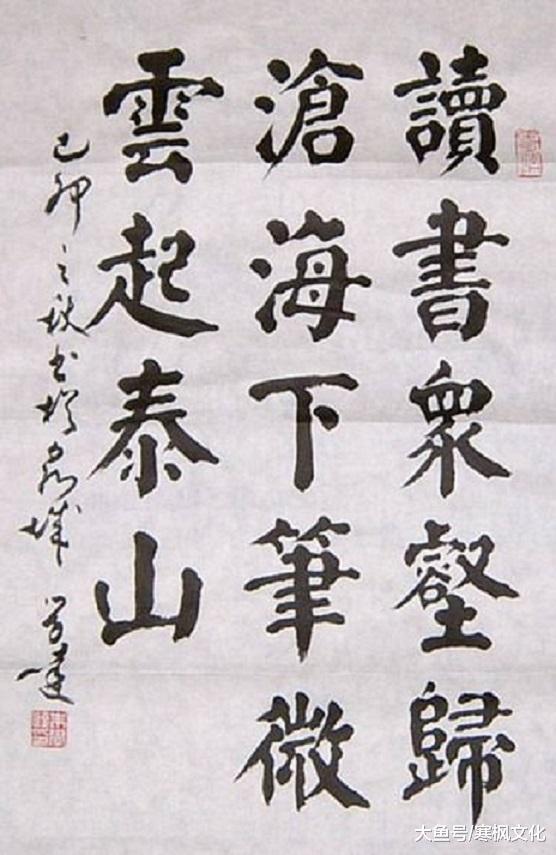 讀書衆壑歸
滄海下筆微
雲起泰山
己卯之秋書於泉城
大鱼号/寒枫文化